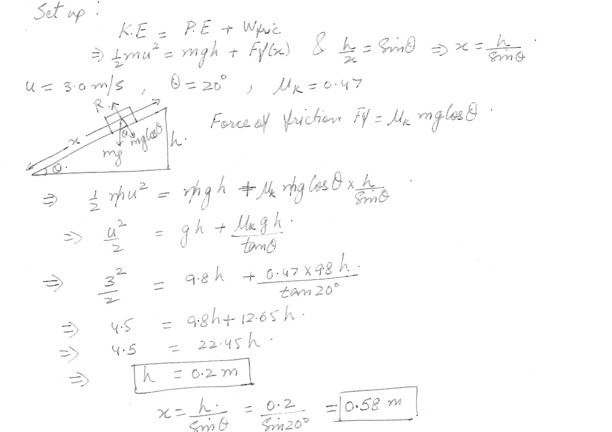 Set up :
K.E = P.E + Wfric
⇒ ½mu² = mgh + Ff(x) & h/x = Sinθ ⇒ x = h/Sinθ
u = 3.0 m/s , θ = 20° , μK = 0.47
R
x
θ
mg
θ
mgcosθ
h
Force of friction Ff = μK mg Cosθ .
⇒ ½ mu² = mgh + μK mg Cosθ × h/Sinθ
⇒ u²/2 = gh + μK g h/tanθ .
⇒ 3²/2 = 9.8h + 0.47 × 9.8 h/tan 20° .
⇒ 4.5 = 9.8h + 12.65 h .
⇒ 4.5 = 22.45 h .
⇒ h = 0.2 m
x = h/Sinθ = 0.2/Sin 20° = 0.58 m